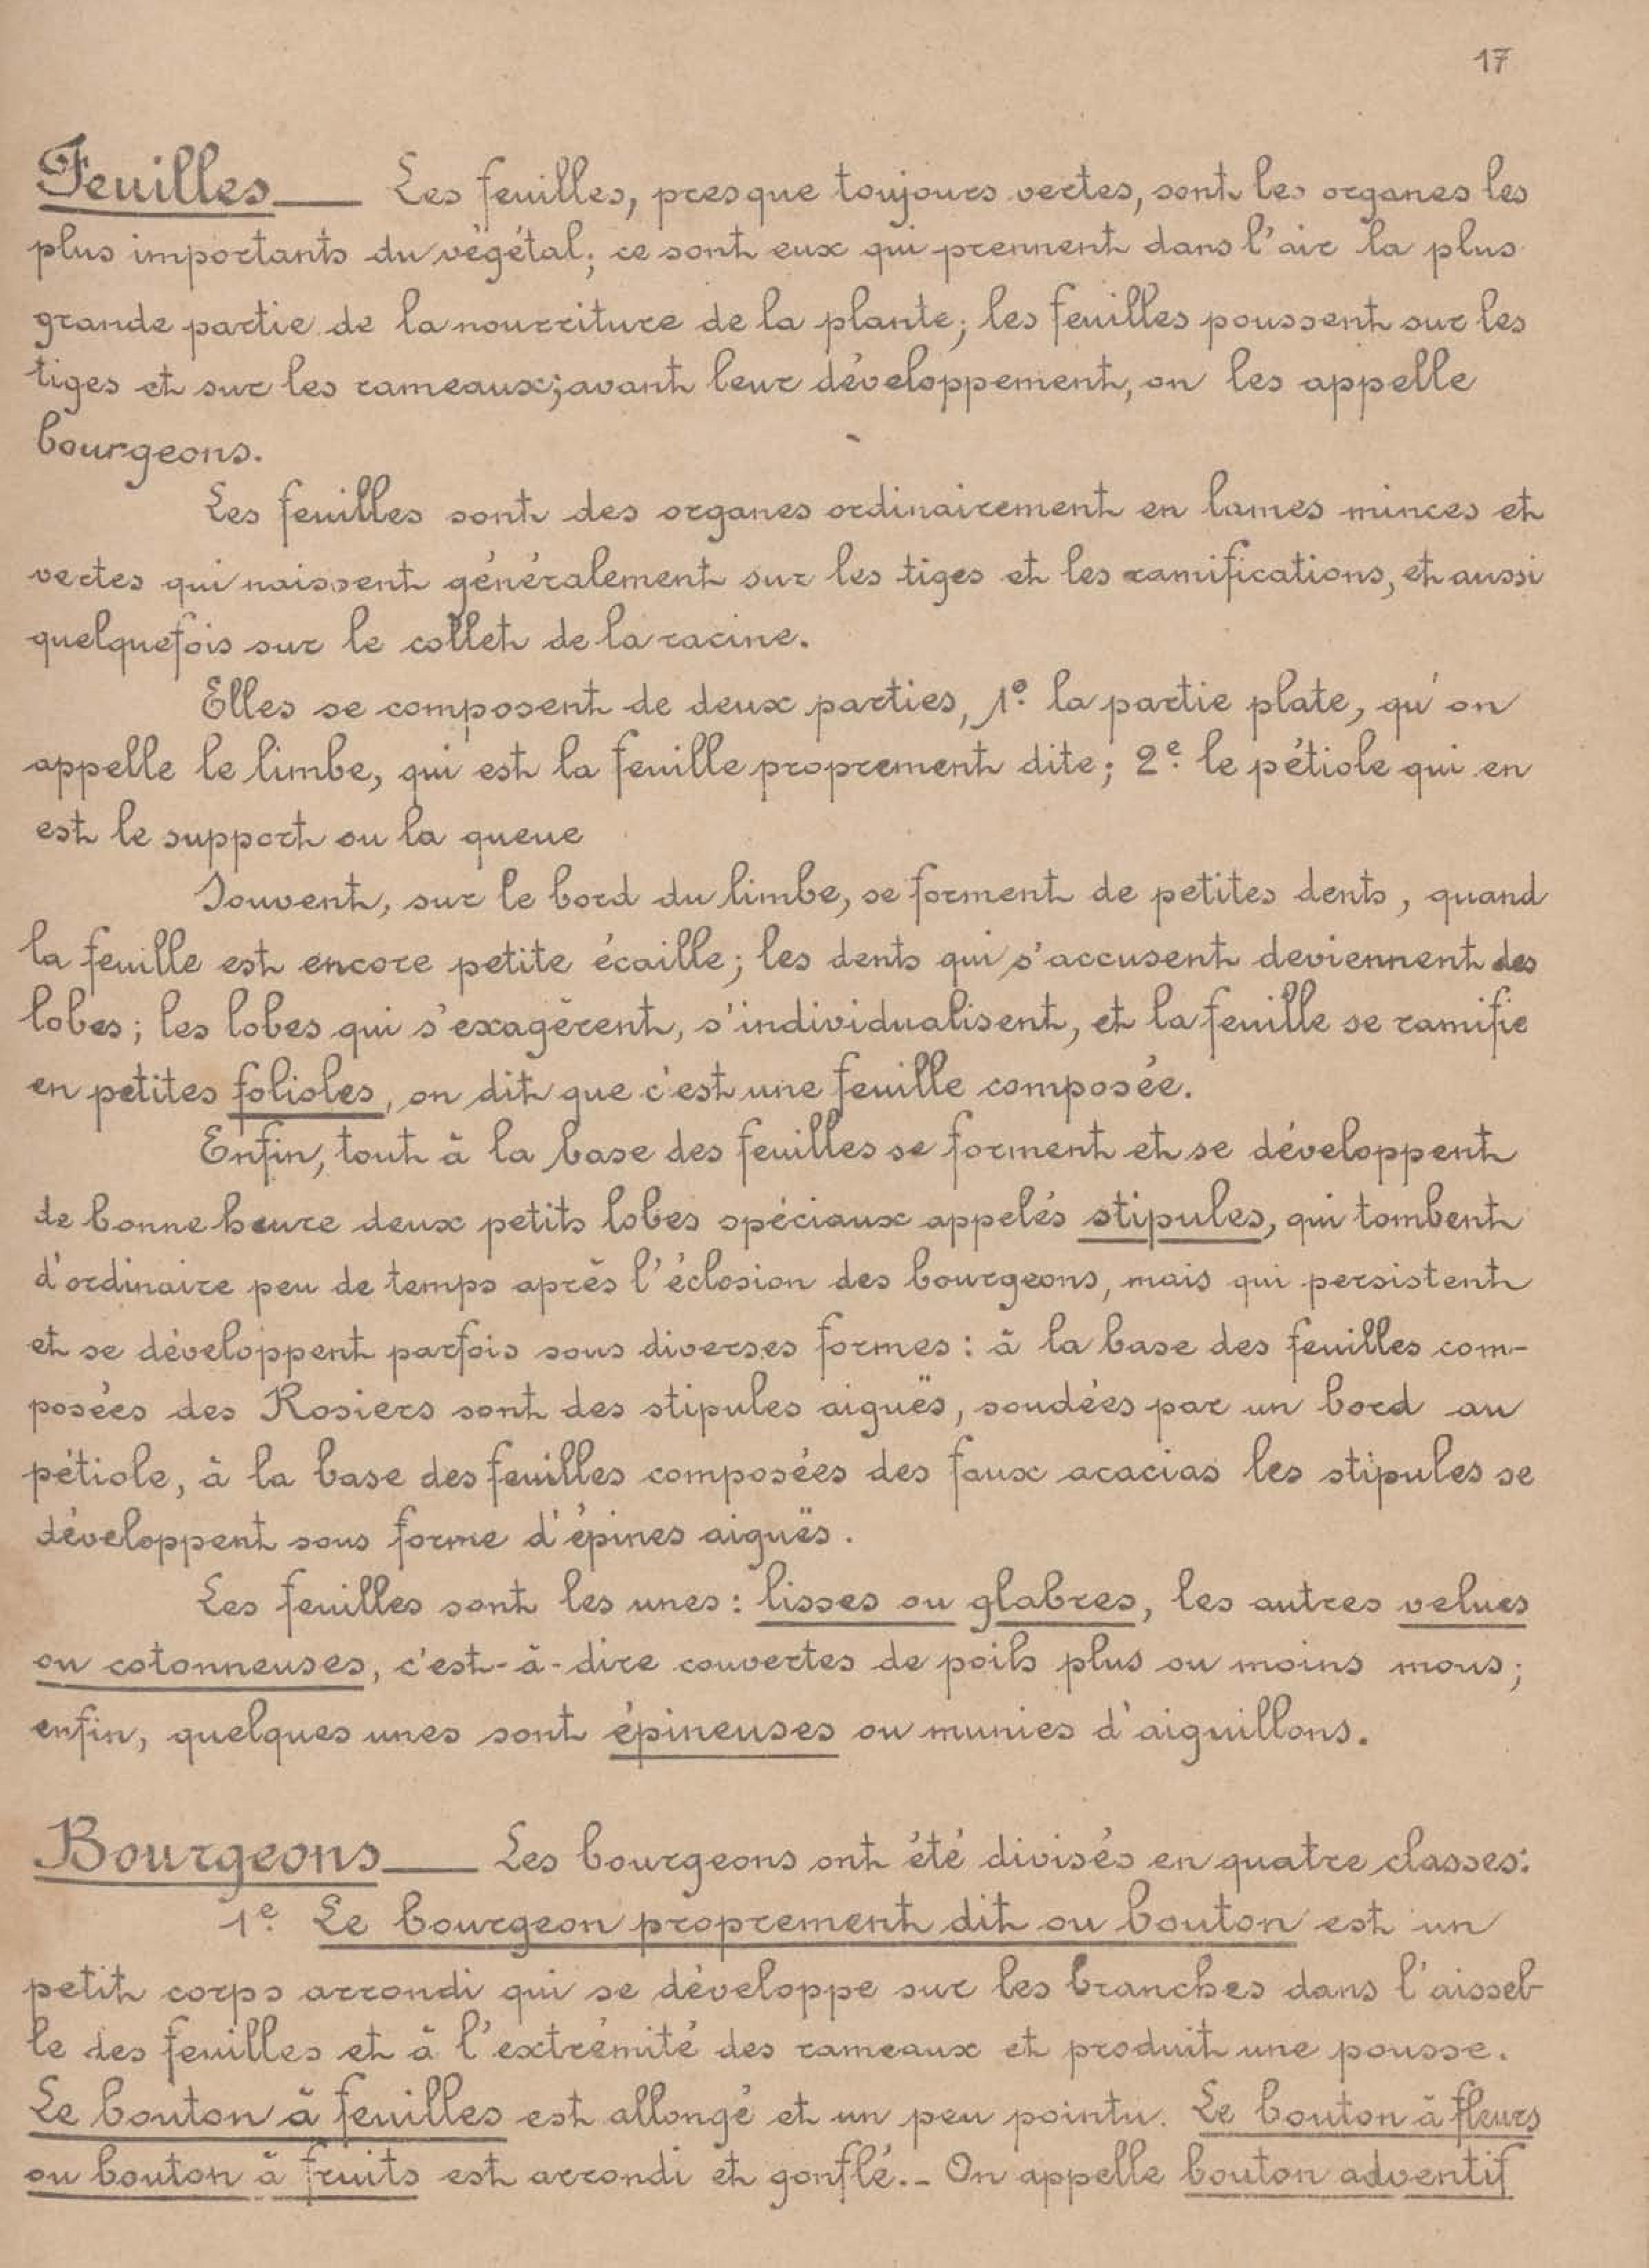 17
Feuilles — Les feuilles, presque toujours vertes, sont les organes les
plus importants du végétal; ce sont eux qui prennent dans l'air la plus
grande partie de la nourriture de la plante; les feuilles poussent sur les
tiges et sur les rameaux; avant leur développement, on les appelle
bourgeons.
Les feuilles sont des organes ordinairement en lames minces et
vertes qui naissent généralement sur les tiges et les ramifications, et aussi
quelquefois sur le collet de la racine.
Elles se composent de deux parties, 1º la partie plate, qu'on
appelle le limbe, qui est la feuille proprement dite; 2e le pétiole qui en
est le support ou la queue
Souvent, sur le bord du limbe, se forment de petites dents, quand
la feuille est encore petite écaille; les dents qui s'accusent deviennent des
lobes; les lobes qui s'exagèrent, s'individualisent, et la feuille se ramifie
en petites folioles, on dit que c'est une feuille composée.
Enfin, tout à la base des feuilles se forment et se développent
de bonne heure deux petits lobes spéciaux appelés stipules, qui tombent
d'ordinaire peu de temps après l'éclosion des bourgeons, mais qui persistent
et se développent parfois sous diverses formes: à la base des feuilles com-
posées des Rosiers sont des stipules aiguës, soudées par un bord au
pétiole, à la base des feuilles composées des faux acacias les stipules se
développent sous forme d'épines aiguës.
Les feuilles sont les unes: lisses ou glabres, les autres velues
ou cotonneuses, c'est-à-dire couvertes de poils plus ou moins mous;
enfin, quelques unes sont épineuses ou munies d'aiguillons.
Bourgeons — Les bourgeons ont été divisés en quatre classes:
1e Le bourgeon proprement dit ou bouton est un
petit corps arrondi qui se développe sur les branches dans l'aissel-
le des feuilles et à l'extrémité des rameaux et produit une pousse.
Le bouton à feuilles est allongé et un peu pointu. Le bouton à fleurs
ou bouton à fruits est arrondi et gonflé. - On appelle bouton adventif